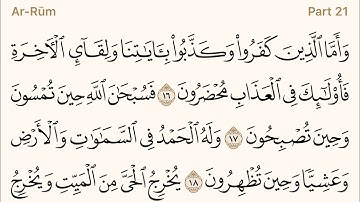 Ar-Rūm Part 21
وَأَمَّا ٱلَّذِينَ كَفَرُواْ وَكَذَّبُواْ بِـَٔايَٰتِنَا وَلِقَآيِٕ ٱلْأٓخِرَةِ
فَأُوْلَٰٓئِكَ فِي ٱلْعَذَابِ مُحْضَرُونَ ١٦ فَسُبْحَٰنَ ٱللَّهِ حِينَ تُمْسُونَ
وَحِينَ تُصْبِحُونَ ١٧ وَلَهُ ٱلْحَمْدُ فِي ٱلسَّمَٰوَٰتِ وَٱلْأَرْضِ
وَعَشِيّٗا وَحِينَ تُظْهِرُونَ ١٨ يُخْرِجُ ٱلْحَيَّ مِنَ ٱلْمَيِّتِ وَيُخْرِجُ